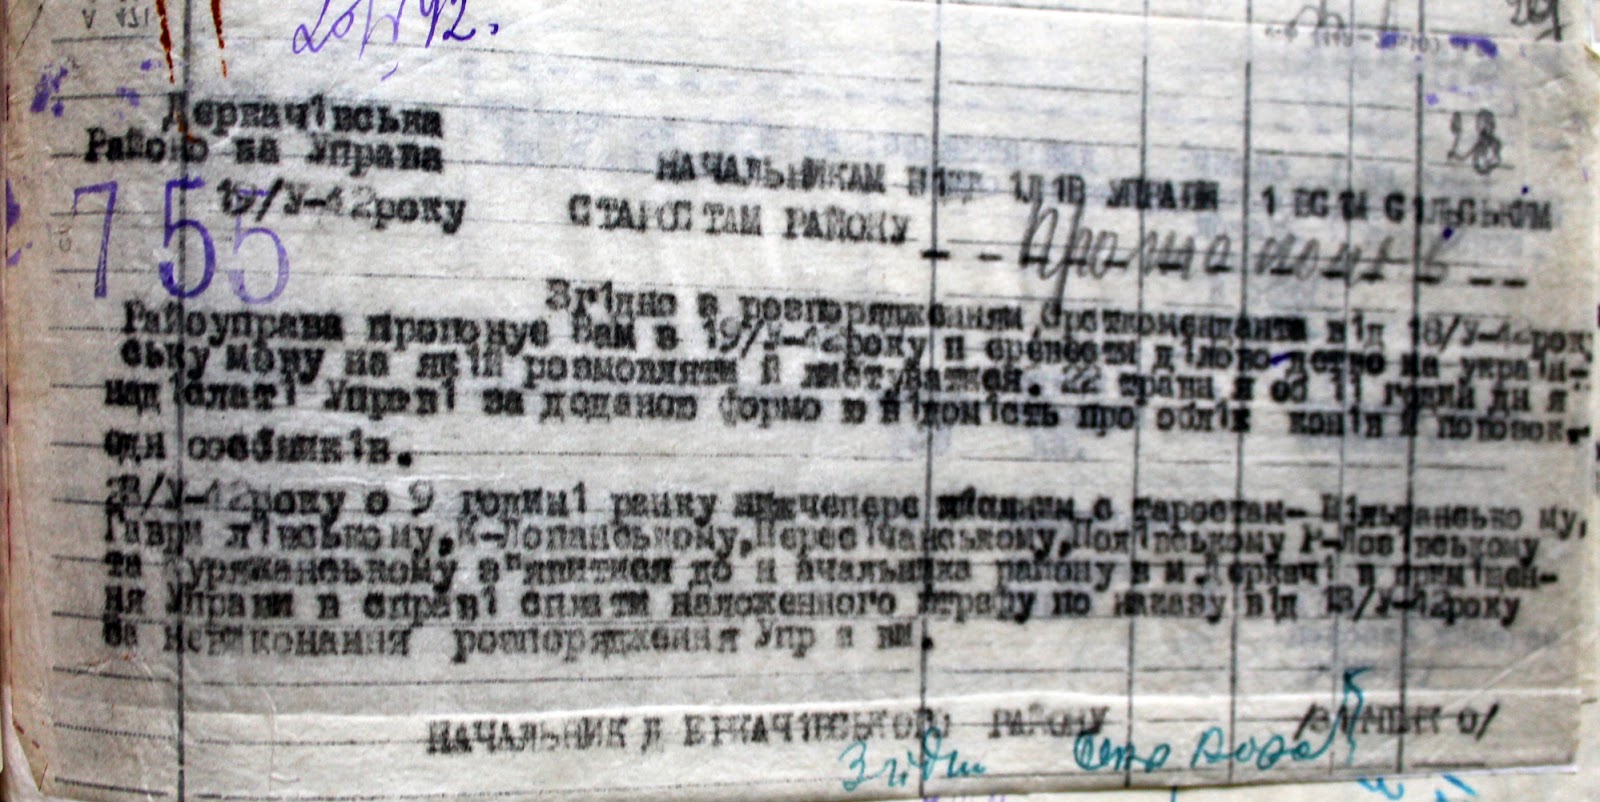 28
Деркачівська
Районова Управа
19/У-42року
755
НАЧАЛЬНИКАМ ВІДДІЛІВ УПРАВИ І ВСІМ СІЛЬСЬКИМ
СТАРОСТАМ РАЙОНУ
Згідно з розпорядженням Ортскоменданта від 18/У-42рок
Райоуправа пропонує Вам з 19/У-42року перевести діловодство на україн-
ську мову на якій розмовляти й листуватися. 22 травня об 11 годин дня
надіслати Управі за доданою формою відомість про облік коней й повозок
одноосібників.
28/У-42року о 9 годині ранку нижчепереліченим старостам- Вільшанському,
Гаврилівському, К-Лопанському, Пересічанському, Полівському Р-Лозівському
та Куряжанському з"явитися до начальника району в м Деркачі в приміщен-
ня Управи в справі сплати наложенного штрафу по наказу від 13/У-42року
за невиконання розпорядження Управи.
НАЧАЛЬНИК ДЕРКАЧІВСЬКОГО РАЙОНУ